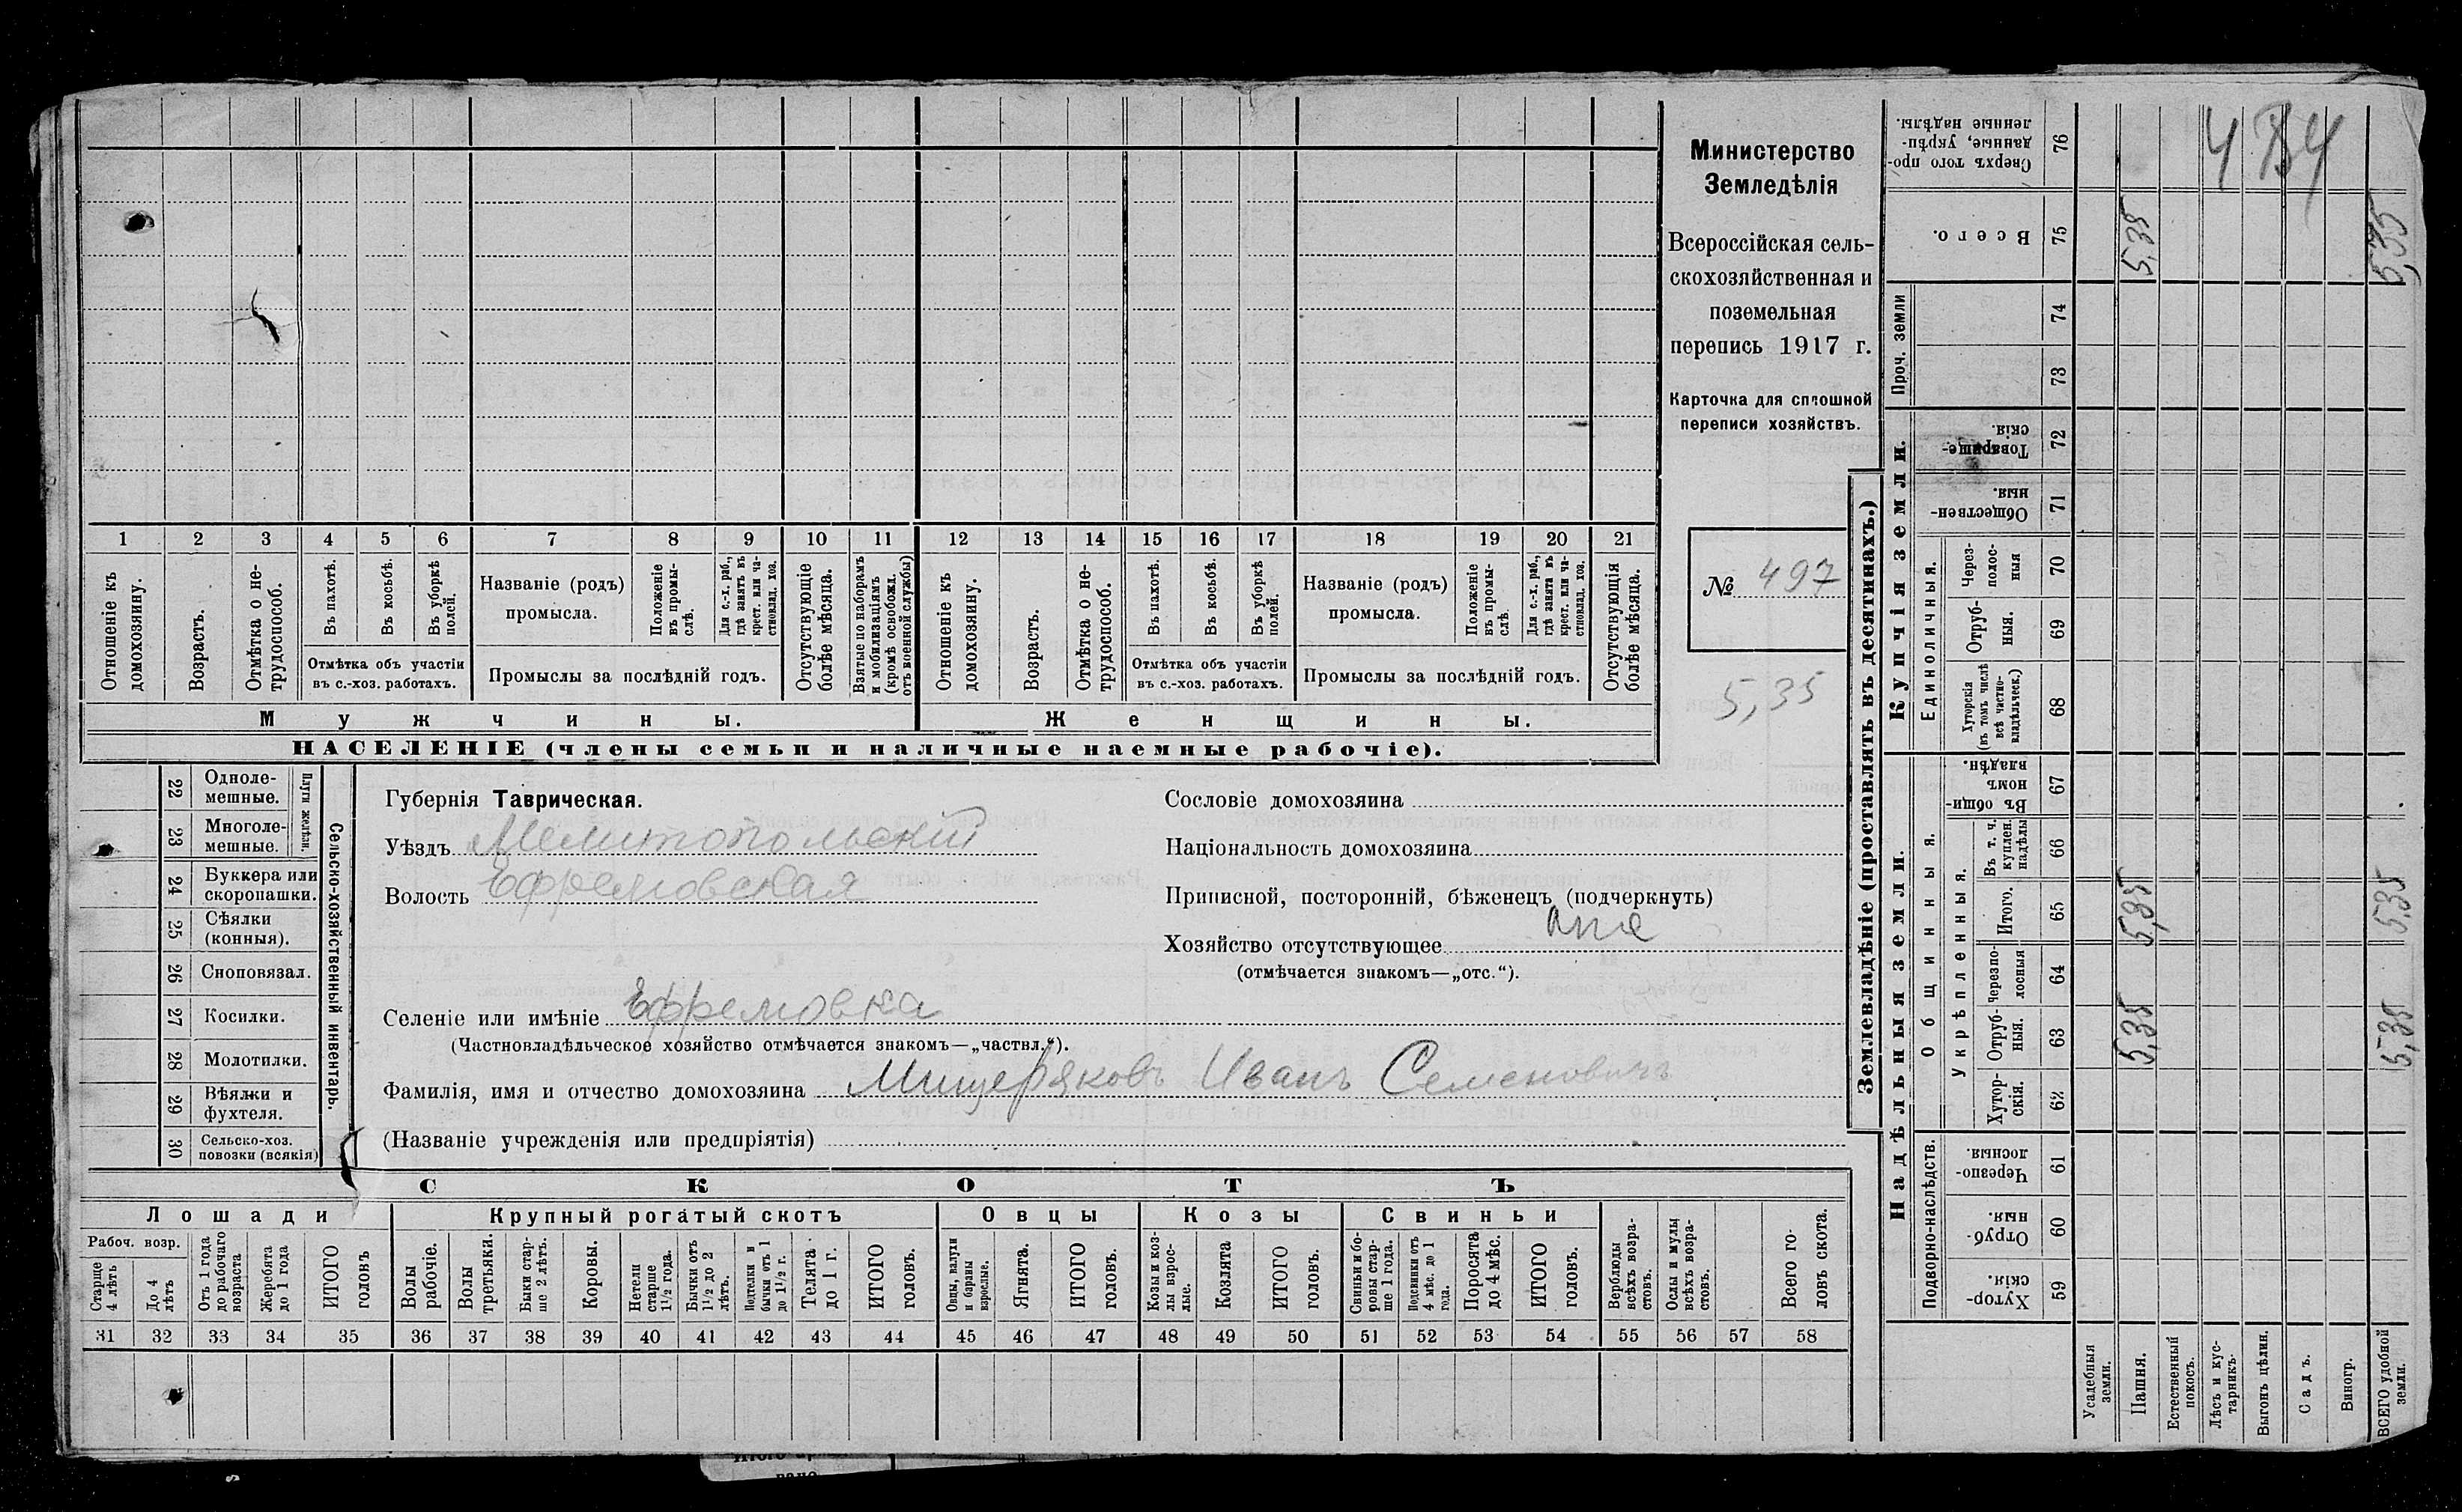 Министерство
Земледѣлія
Всероссійская сель-
скохозяйственная и
поземельная
перепись 1917 г.
Карточка для сплошной
переписи хозяйствъ.
№ 497
5,35
1 2 3 4 5 6 7 8 9 10 11 12 13 14 15 16 17 18 19 20 21
Отношеніе къ домохозяину.
Возрастъ.
Отмѣтка о не-трудоспособ.
Въ пахотѣ.
Въ косьбѣ.
Въ уборкѣ полей.
Названіе (родъ)
промысла.
Положеніе въ промы-слѣ.
Для с.-х. раб., гдѣ занятъ въ крест. или ча-стновлад. хоз.
Отсутствующіе болѣе мѣсяца.
Взятые по наборамъ и мобилизаціямъ (кромѣ освобожд. отъ военной службы)
Отношеніе къ домохозяину.
Возрастъ.
Отмѣтка о не-трудоспособ.
Въ пахотѣ.
Въ косьбѣ.
Въ уборкѣ полей.
Названіе (родъ)
промысла.
Положеніе въ промы-слѣ.
Для с.-х. раб., гдѣ занята въ крест. или ча-стновлад. хоз.
Отсутствующія болѣе мѣсяца.
Отмѣтка объ участіи
въ с.-хоз. работахъ.
Промыслы за послѣдній годъ.
Отмѣтка объ участіи
въ с.-хоз. работахъ.
Промыслы за послѣдній годъ.
Мужчины.
Женщины.
НАСЕЛЕНІЕ (члены семьи и наличные наемные рабочіе).
Сельско-хозяйственный инвентарь.
Плуги желѣзн.
22 Одноле-
мешные.
23 Многоле-
мешные.
24 Буккера или
скоропашки.
25 Сѣялки
(конныя).
26 Сноповязал.
27 Косилки.
28 Молотилки.
29 Вѣялки и
фухтеля.
30 Сельско-хоз.
повозки (всякія)
Губернія Таврическая.
Уѣздъ Мелитопольскій
Волость Ефремовская
Сословіе домохозяина
Національность домохозяина
Приписной, посторонній, бѣженецъ (подчеркнуть)
Хозяйство отсутствующее
(отмѣчается знакомъ—„отс.“).
Селеніе или имѣніе Ефремовка
(Частновладѣльческое хозяйство отмѣчается знакомъ—„частвл.“).
Фамилія, имя и отчество домохозяина Мищеряковъ Иванъ Семеновичъ
(Названіе учрежденія или предпріятія)
СКОТЪ
Лошади
Крупный рогатый скотъ
Овцы
Козы
Свиньи
Рабоч. возр.
Старше 4 лѣтъ
До 4 лѣтъ
Отъ 1 года до рабочаго возраста
Жеребята до 1 года
ИТОГО головъ
Волы рабочіе.
Волы третьяки.
Быки стар-ше 2 лѣтъ.
Коровы.
Нетели старше 1½ года.
Бычки отъ 1½ до 2 лѣтъ.
Подтелки и бычки отъ 1 до 1½ г.
Телята до 1 г.
ИТОГО головъ.
Овцы, валухи и бараны взрослые.
Ягнята.
ИТОГО головъ.
Козы и коз-лы взрос-лые.
Козлята
ИТОГО головъ.
Свиньи и бо-ровы стар-ше 1 года.
Подсвинки отъ 4 мѣс. до 1 года.
Поросята до 4 мѣс.
ИТОГО головъ.
Верблюды всѣхъ возра-стовъ.
Ослы и мулы всѣхъ возра-стовъ.
Всего го-ловъ скота.
31 32 33 34 35 36 37 38 39 40 41 42 43 44 45 46 47 48 49 50 51 52 53 54 55 56 57 58
Землевладѣніе (проставлять въ десятинахъ.)
Сверхъ того про-данные, укрѣп-ленные надѣлы. 76
Всего. 75 5,35 5,35
Проч. земли
74
73
Купчія земли.
Товарище-скія. 72
Обществен-ныя. 71
Единоличныя.
Через-полос-ныя 70
Отруб-ныя. 69
Хуторскія (въ томъ числѣ всѣ частно-владѣльческ.) 68
Надѣльныя земли.
Общинныя.
Въ общи-номъ владѣн. 67
Укрѣпленныя.
Въ т. ч. куплен. надѣлы 66
Итого. 65 5,35 5,35
Черезпо-лосныя 64
Отруб-ныя. 63 5,35 5,35
Хутор-скія. 62
Подворно-наслѣдств.
Черезпо-лосныя. 61
Отруб-ныя. 60
Хутор-скія. 59
Усадебныя земли.
Пашня.
Естественный покосъ.
Лѣсъ и кус-тарникъ.
Выгонъ цѣлин.
Садъ.
Виногр.
ВСЕГО удобной земли.